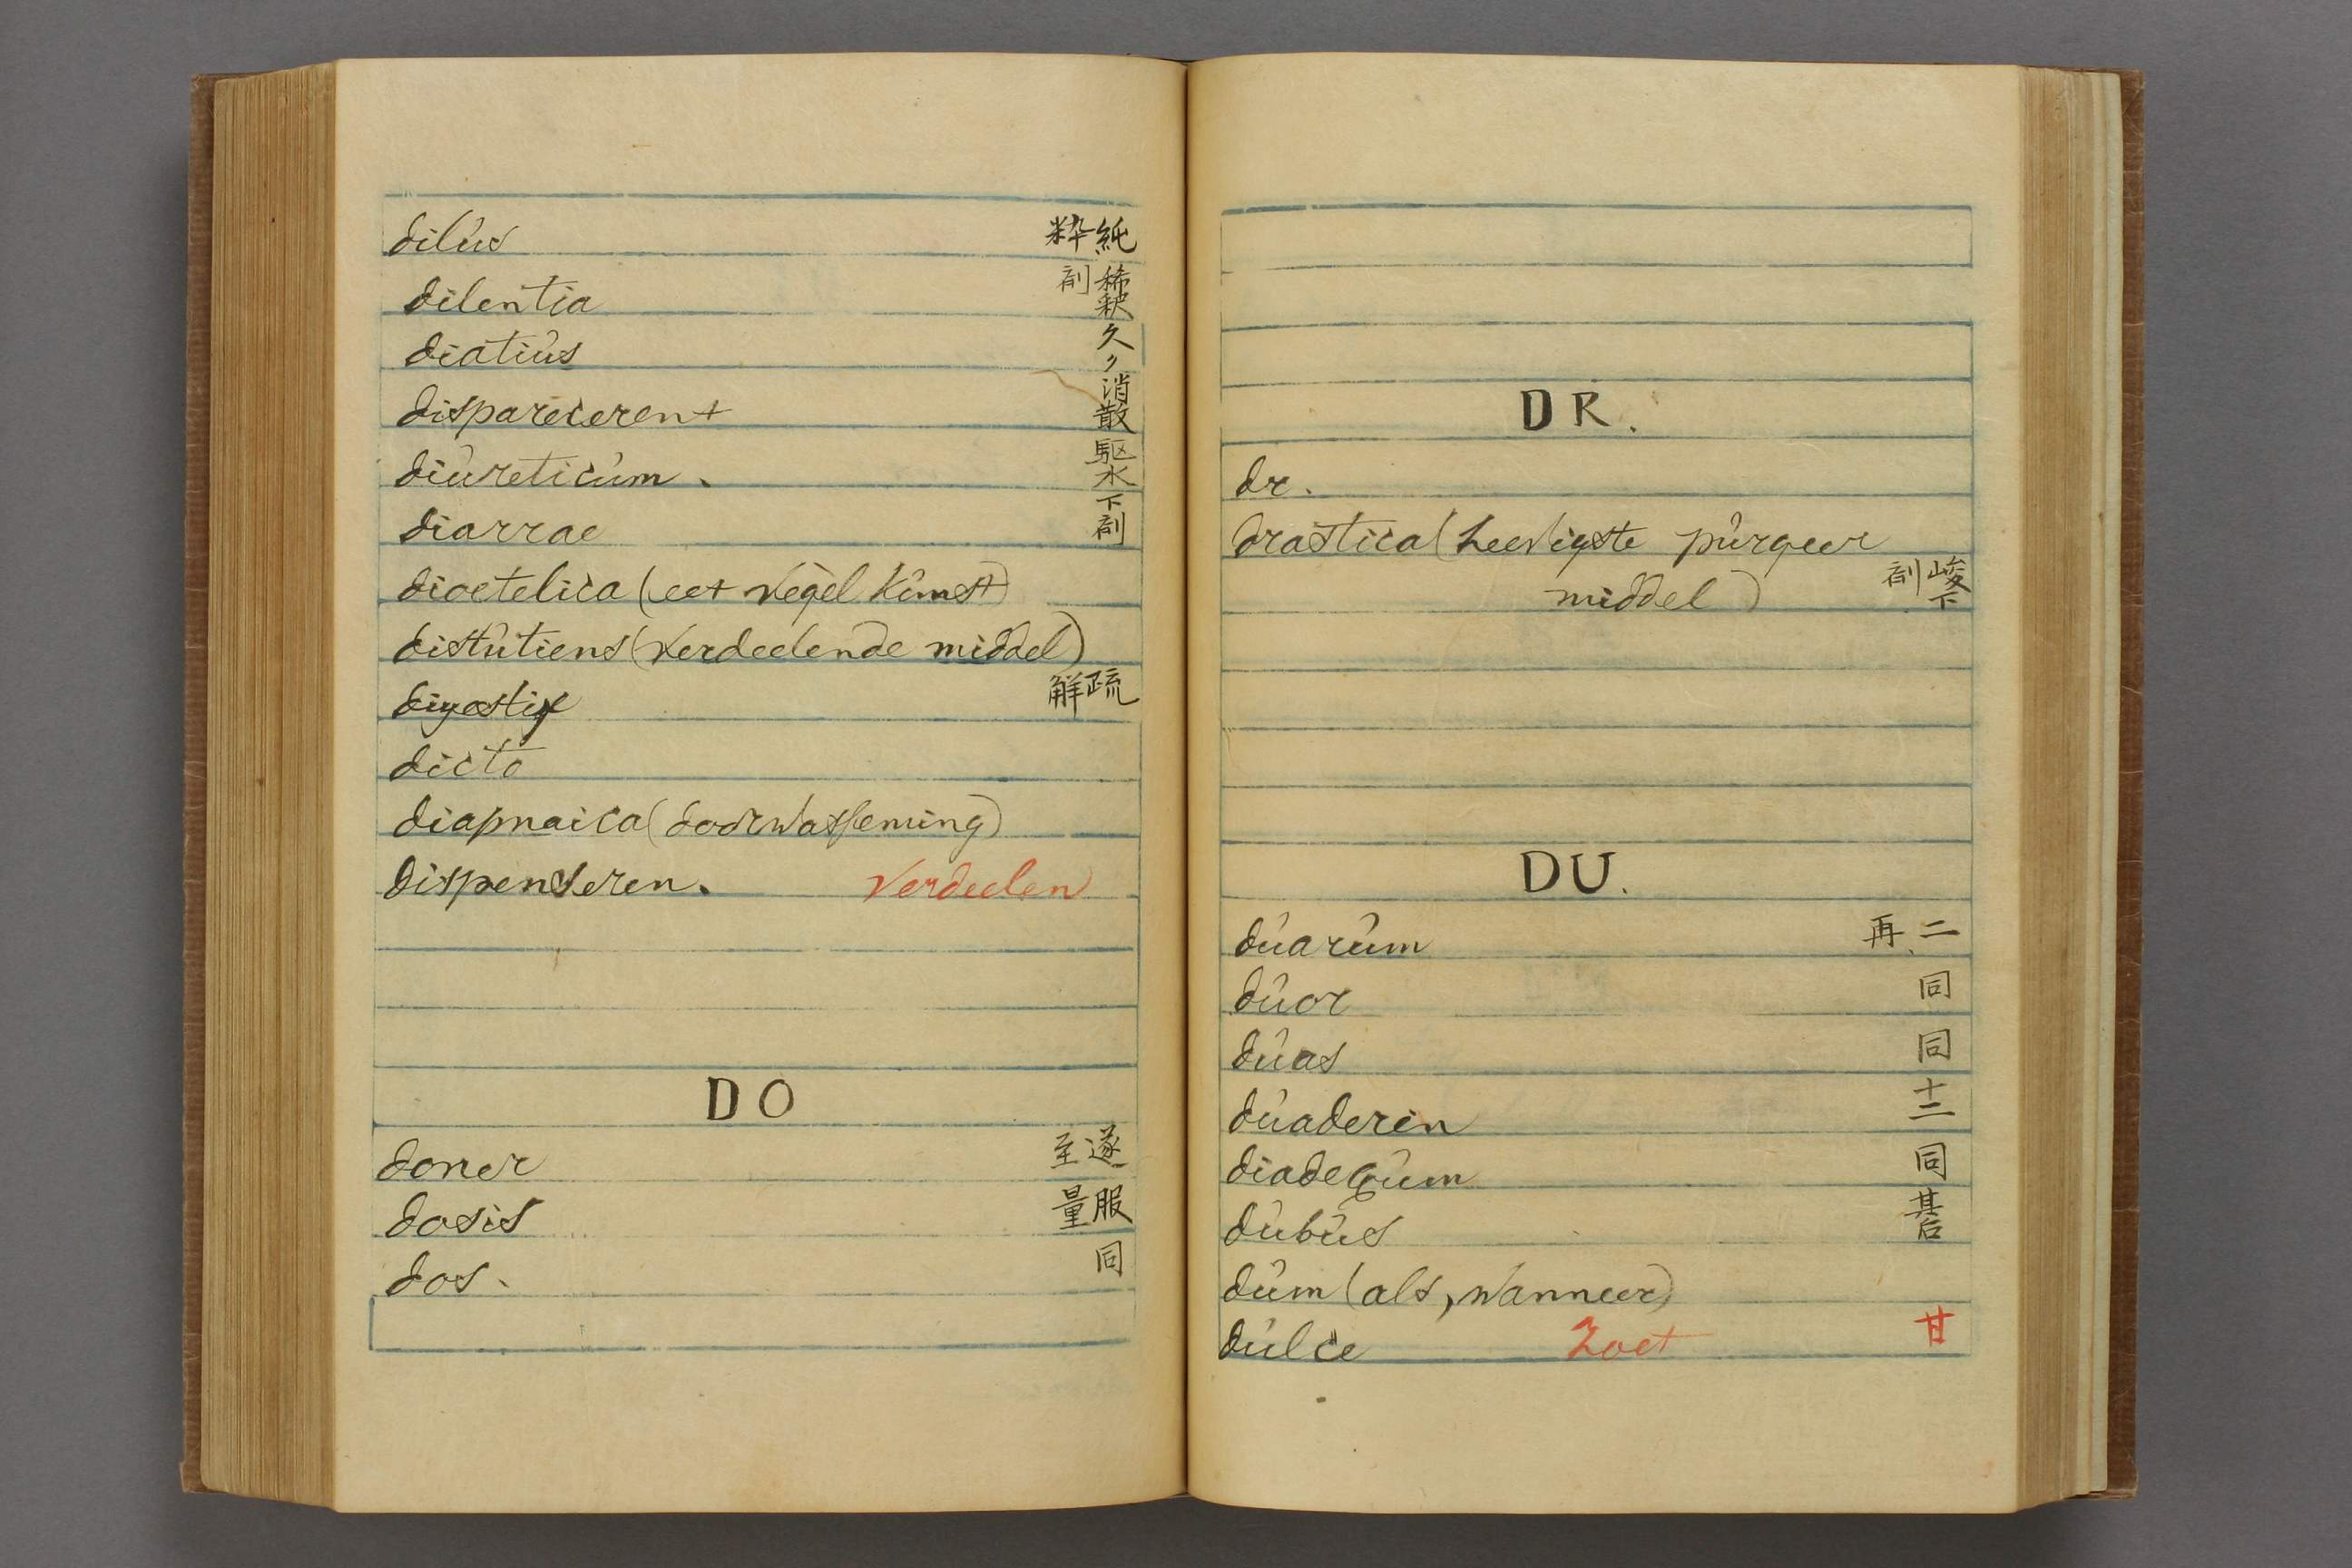 dilùs 純粋
dilentia 稀釈剤
diatiùs 久〃
dispareceren+ 消散
diùreticùm. 駆水
diarrae 下剤
dioetelica (eet regel kùnst)
distùtiens (verdeelende middel)
digestif 疏解
dicto
diapnaica (doorwasseming)
dispenseren. verdeelen
DO
doner 遂至
dosis 服量
dos. 同
DR.
dr.
drastica (heevigste pùrgeer
middel) 峻下剤
DU.
dùarùm 二、再
dùor 同
dùas 同
dùaderin 十二
diadecùm 同
dùbùs 其后
dùm (als, wanneer)
dùlce zoet 甘